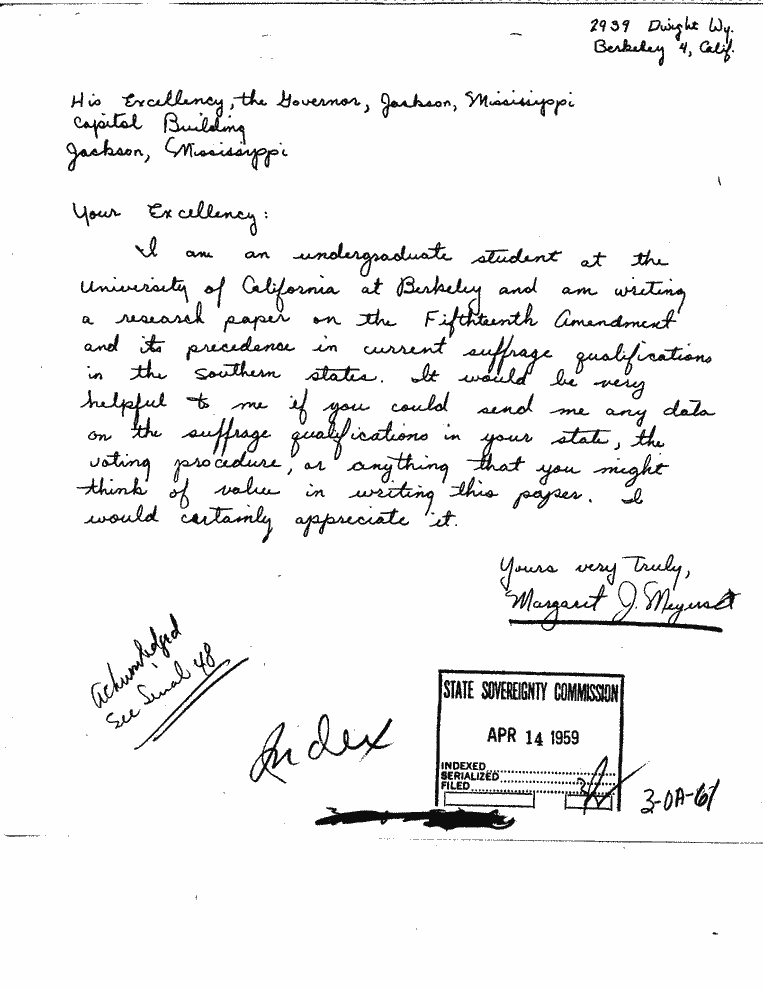 2939 Dwight Wy.
Berkeley 4, Calif.
His Excellency, the Governor, Jackson, Mississippi
Capitol Building
Jackson, Mississippi
Your Excellency:
I am an undergraduate student at the
University of California at Berkeley and am writing
a research paper on the Fifthteenth Amendment
and its precedence in current suffrage qualifications
in the Southern states. It would be very
helpful to me if you could send me any data
on the suffrage qualifications in your state, the
voting procedure, or anything that you might
think of value in writing this paper. I
would certainly appreciate it.
Yours very Truly,
Margaret J.
Acknowledged
See Serial 48
Index
STATE SOVEREIGNTY COMMISSION
APR 14 1959
INDEXED
SERIALIZED
FILED
3-0A-61